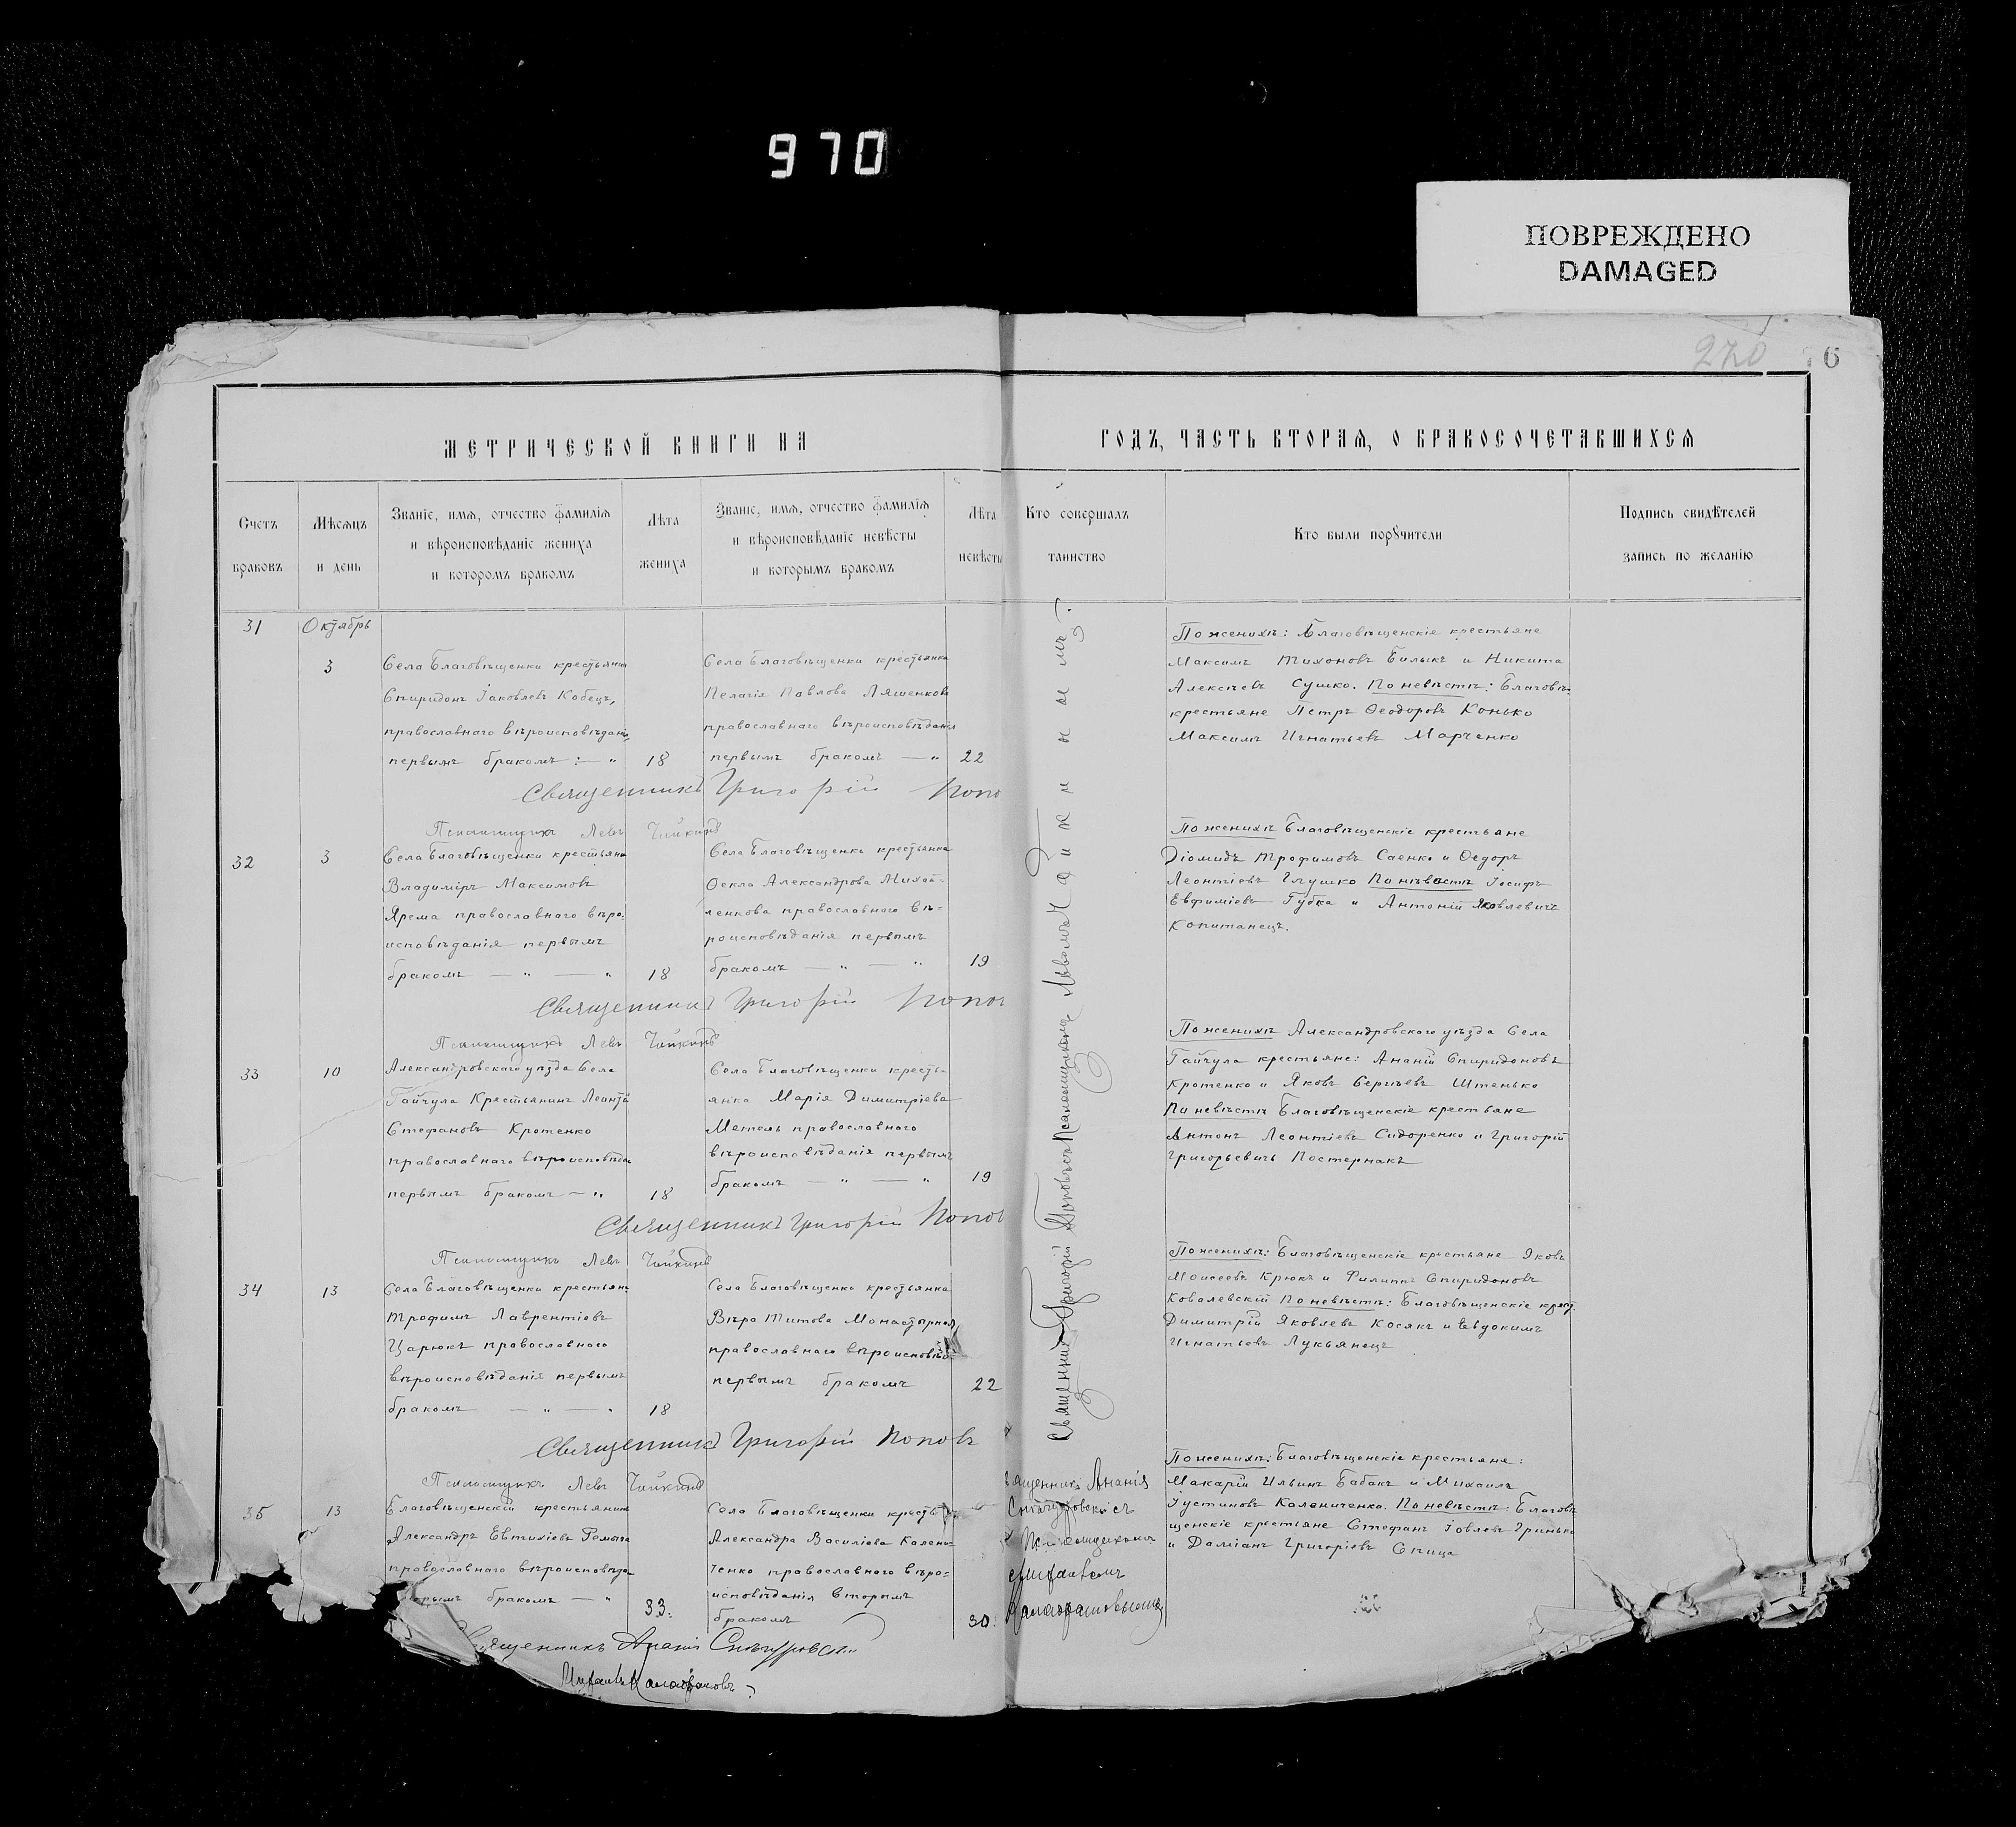 970
ПОВРЕЖДЕНО
DAMAGED
270
6
МЕТРИЧЕСКОЙ КНИГИ НА
ГОДЪ, ЧАСТЬ ВТОРАЯ, О БРАКОСОЧЕТАВШИХСЯ
Счетъ
браковъ
Мѣсяцъ
и день
Званіе, имя, отчество фамилія
и вѣроисповѣданіе жениха
и которомъ бракомъ
Лѣта
жениха
Званіе, имя, отчество фамилія
и вѣроисповѣданіе невѣсты
и которымъ бракомъ
Лѣта
невѣсты
Кто совершалъ
таинство
Кто были поручители
Подпись свидѣтелей
запись по желанію
31
Октябрь
3
Села Благовѣщенки крестьянин
Спиридонъ Іаковлевъ Кобецъ,
православнаго вѣроисповѣдан.
первымъ бракомъ : — „
18
Села Благовѣщенки крестьянка
Пелагія Павлова Ляшенкова
православнаго вѣроисповѣданія
первымъ бракомъ — „
22
По женихѣ: Благовѣщенскіе крестьяне
Максимъ Тихоновъ Билыкъ и Никита
Алексѣевъ Сушко. По невѣстѣ: Благовѣ-
крестьяне Петръ Ѳеодоровъ Конько
Максимъ Игнатьевъ Марченко
Священникъ Григорій Попо
Псаломщикъ Левъ Чайкинъ
32
3
Села Благовѣщенки крестьянин
Владиміръ Максимовъ
Ярема православнаго вѣро-
исповѣданія первымъ
бракомъ — „ — „
18
Села Благовѣщенки крестьянка
Ѳекла Александрова Михай-
ленкова православнаго вѣ-
роисповѣданія первымъ
бракомъ — „ — „
19
По женихѣ Благовѣщенскіе крестьяне
Діомидъ Трофимовъ Саенко и Ѳедоръ
Леонтіевъ Глушко По невѣстѣ Іосифъ
Евфиміевъ Губка и Антоній Яковлевичъ
Копитанецъ.
Священникъ Григорій Попов
Псаломщикъ Левъ Чайкинъ
33
10
Александровскаго уѣзда Села
Гайчула Крестьянинъ Леонтій
Стефановъ Кротенко
православнаго вѣроисповѣдан
первымъ бракомъ — „
18
Села Благовѣщенки кресть-
янка Марія Димитріева
Метель православнаго
вѣроисповѣданія первымъ
бракомъ — „ — „
19
По женихѣ Александровскаго уѣзда Села
Гайчула крестьяне: Ананій Спиридоновъ
Кротенко и Яковъ Сергѣевъ Штенько
По невѣстѣ Благовѣщенскіе крестьяне
Антонъ Леонтіевъ Сидоренко и Григорій
Григорьевичъ Постернакъ
Священникъ Григорій Попов
Псаломщикъ Левъ Чайкинъ
34
13
Села Благовѣщенки крестьян-
Трофимъ Лаврентіевъ
Царюкъ православнаго
вѣроисповѣданія первымъ
бракомъ — „ — „
18
Села Благовѣщенки крестьянка
Вѣра Титова Монастырная
православнаго вѣроисповѣд-
первымъ бракомъ
22
По женихѣ: Благовѣщенскіе крестьяне Яковъ
Моисеевъ Крюкъ и Филиппъ Спиридоновъ
Ковалевскій По невѣстѣ: Благовѣщенскіе крест.
Димитрій Яковлевъ Косякъ и Евдокимъ
Игнатьевъ Лукьянецъ
Священникъ Григорій Поповъ
Псаломщикъ Левъ Чайкинъ
Священникъ Григорій Поповъ съ Псаломщикомъ Львомъ Чайкинымъ.
35
13
Благовѣщенскій крестьянинъ
Александръ Евтихіевъ
православнаго вѣроисповѣда-
бракомъ — „
33.
Села Благовѣщенки кресть
Александра Василіева Калени-
ченко православнаго вѣро-
исповѣданія вторымъ
бракомъ
30.
вященникъ Ананія
Снѣгуровскій съ
Псаломщикомъ
По женихѣ: Благовѣщенскіе крестьяне:
Макарій Ильинъ Бабакъ и Михаилъ
Іустиновъ Калениченко. По невѣстѣ: Благовѣ-
щенскіе крестьяне Стефанъ Іовлевъ Гринько
и Даміанъ Григоріевъ Спица
Священникъ Ананія Снѣгуровскій